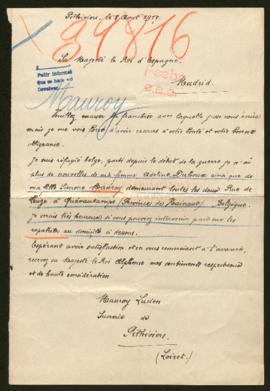 Pithiviers, le 8 Août 1917
39816
Sa Majesté le Roi d'Espagne
Madrid.
Petit Informé
que se hace
Mauroy
Veuillez excuser la franchise avec laquelle je vous écris
mais je me vois forcé d'avoir recours à votre bonté et votre bonne
obligeance.
Je suis réfugié belge, parti depuis le début de la guerre je n'ai
plus de nouvelles de ma femme Dubois ainsi que de
ma fille Simone Mauroy demeurant toutes les deux Rue de
à Quévaucamps (Province de Hainaut) Belgique.
Je serais très heureux si vous pouviez intervenir pour me les
rapatrier au domicile
Espérant avoir satisfaction et en vous remerciant à l'avance,
recevez sa Majesté le Roi Alphonse mes sentiments respectueux
et de haute considération.
Mauroy Lucien
Sucrerie de
Pithiviers
(Loiret)